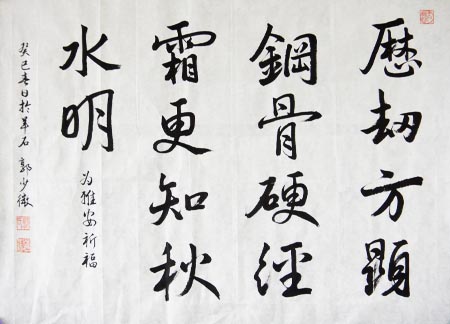 歷劫方顯
鋼骨硬經
霜更知秋
水明
為雅安祈福
癸巳春日於羊石郭少微